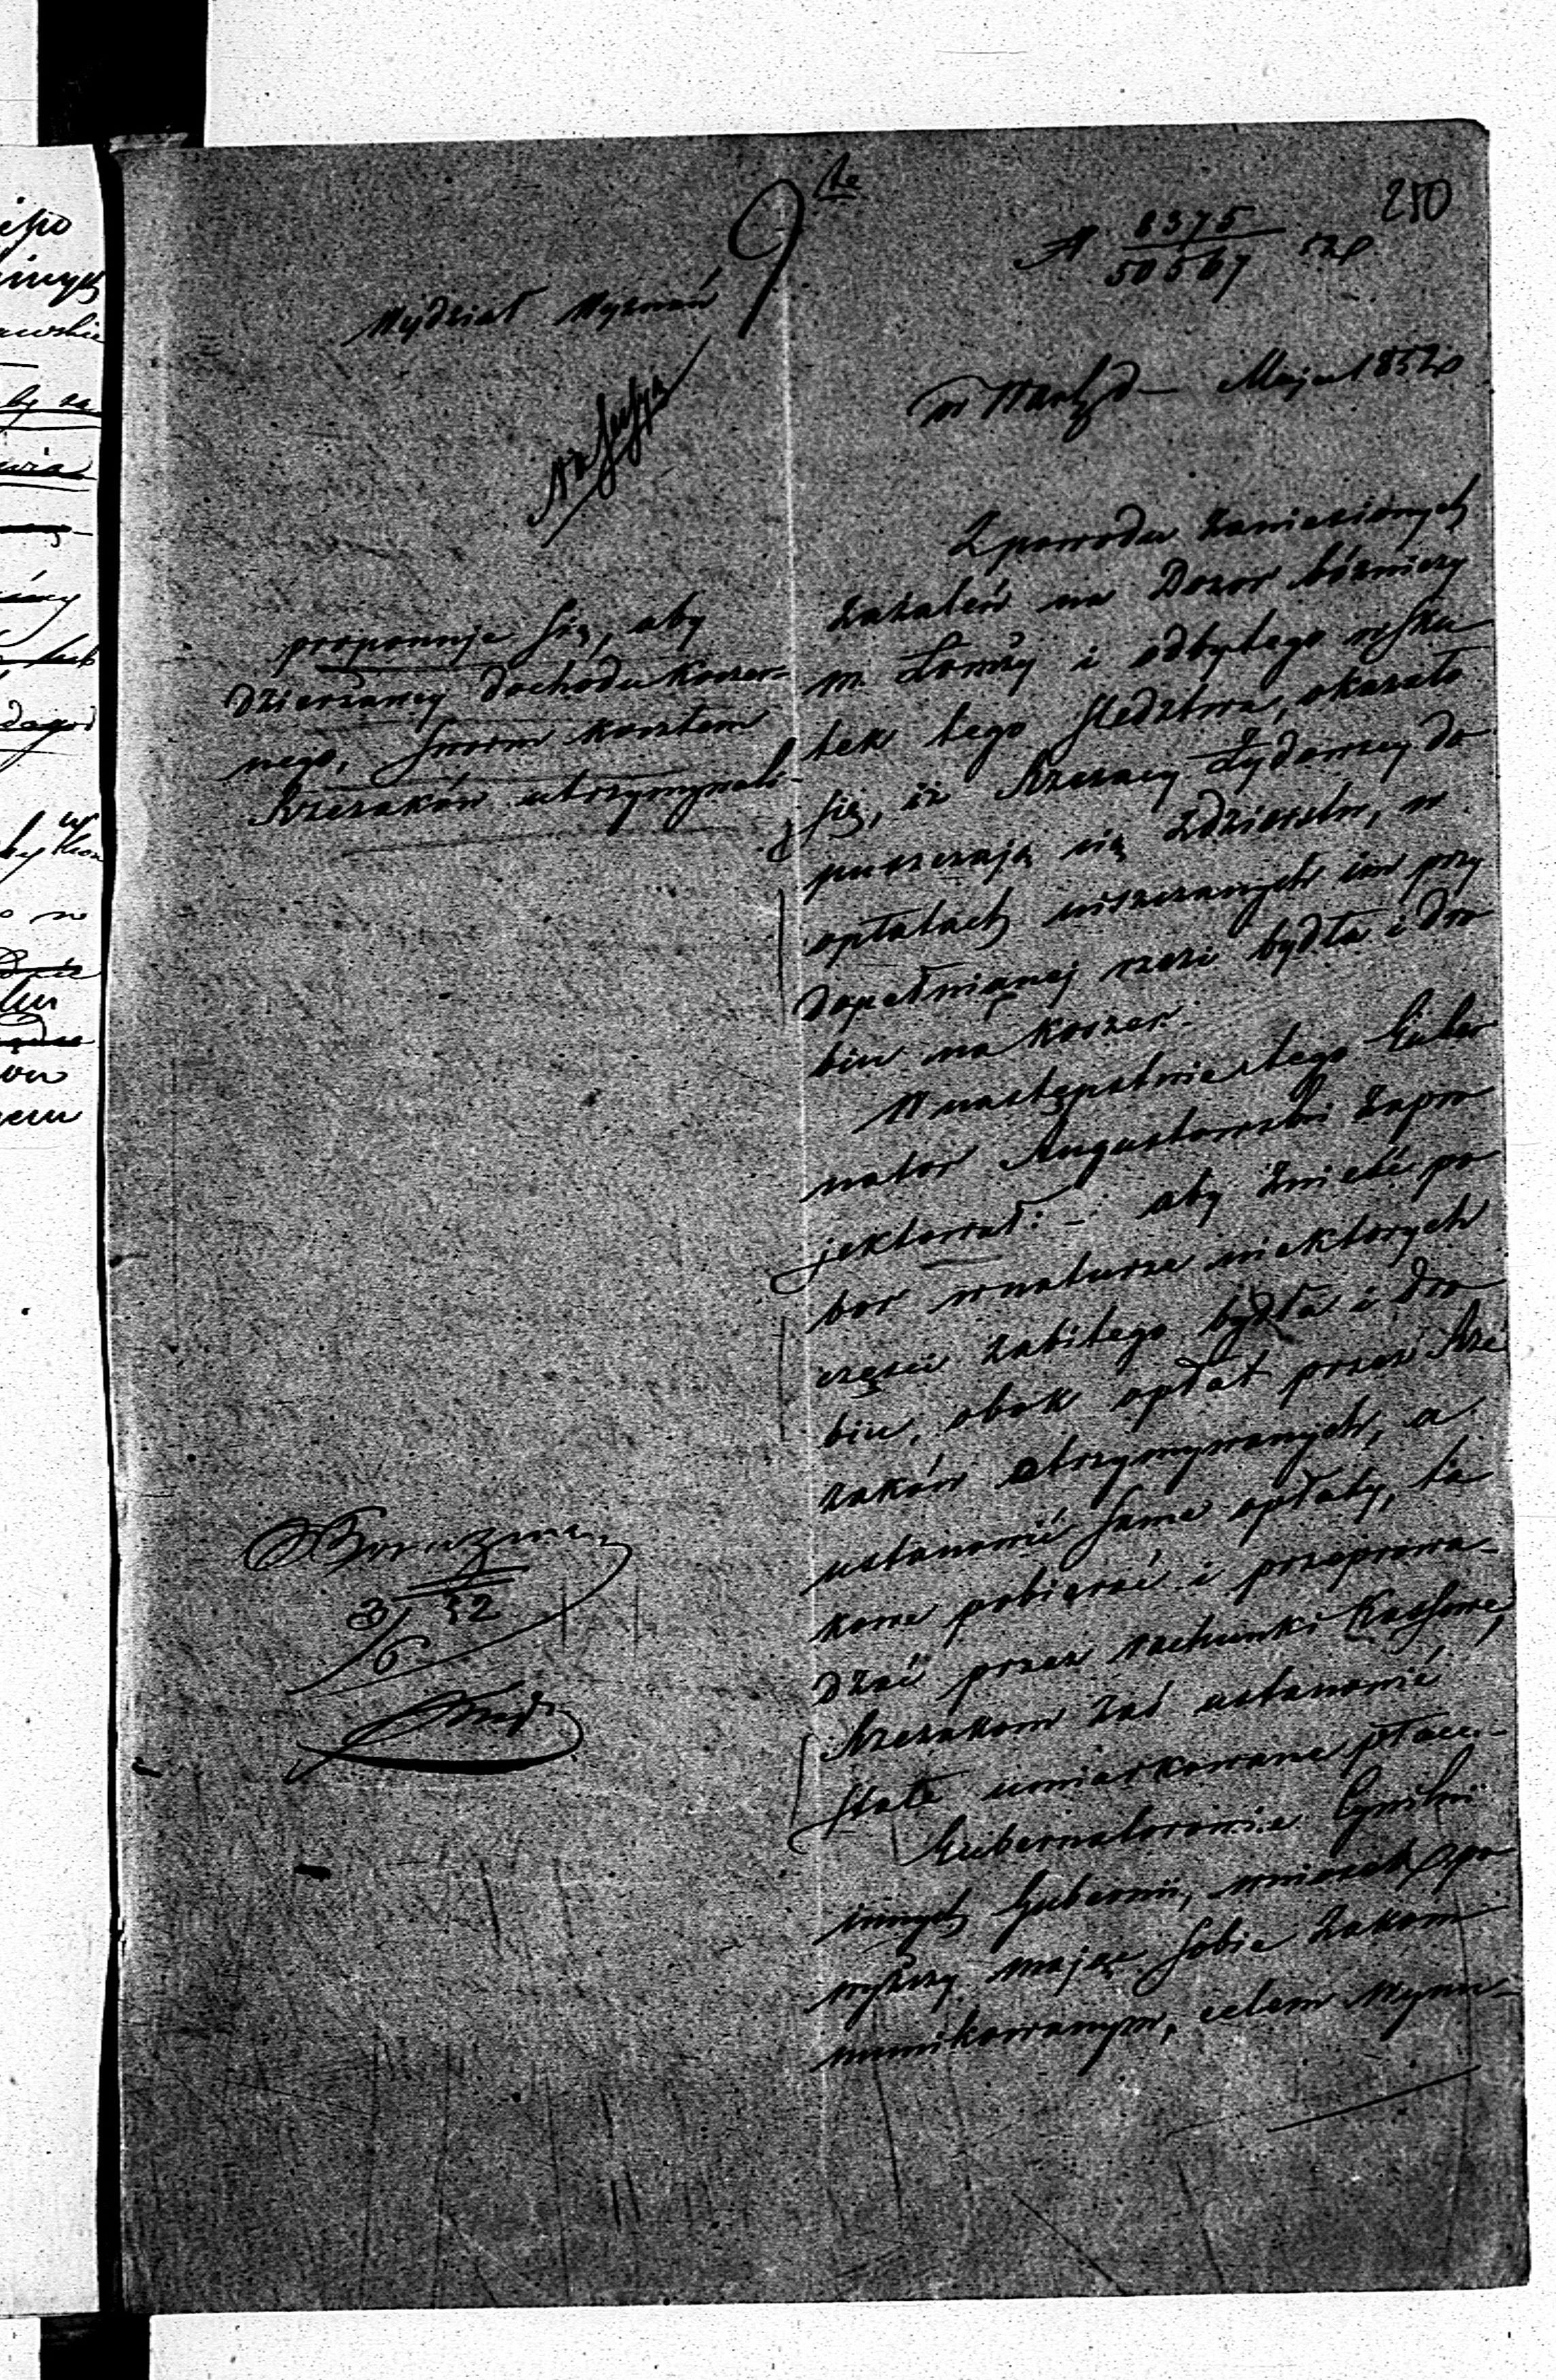 250
N 8375 / 50567
Wydział Wyznań
w Warsz d – Maja 1852 r
proponuje się, aby
Dzierżawcy dochodu koszer=
nego, swoim kosztem
Rzezaków utrzymywali
Z powodu zaniesionych
zażaleń na Dozor bóżniczy
m. Łomży i odbytego wsku
tek tego śledztwa, okazało
się, iż Rzezacy Żydowscy do
puszczają się zdzierstw, w
opłatach uiszczanych im przy
dopełnianej rzezi bydła i dro
biu na koszer.
W następstwie tego Guber
nator Augustowski zapro
jektował: – aby znieść po
bor w naturze niektorych
części zabitego bydła i dro
biu, obok opłat przez Rze
zaków otrzymywanych, a
ustanowić same opłaty, ta
kowe pobierać i przeprowa-
dzać przez rachunki Kassowe,
Rzezakom zaś ustanowić
stałe umiarkowane płace.–
Gubernatorowie Cywilni
innych Gubernii, wniosek po
wyższy mając sobie zakom
munikowanym, celem wynu-
3/6 52